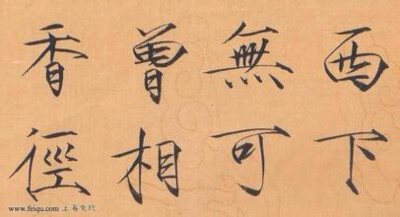 西下
無可
曾相
香徑
www.feiqu.com